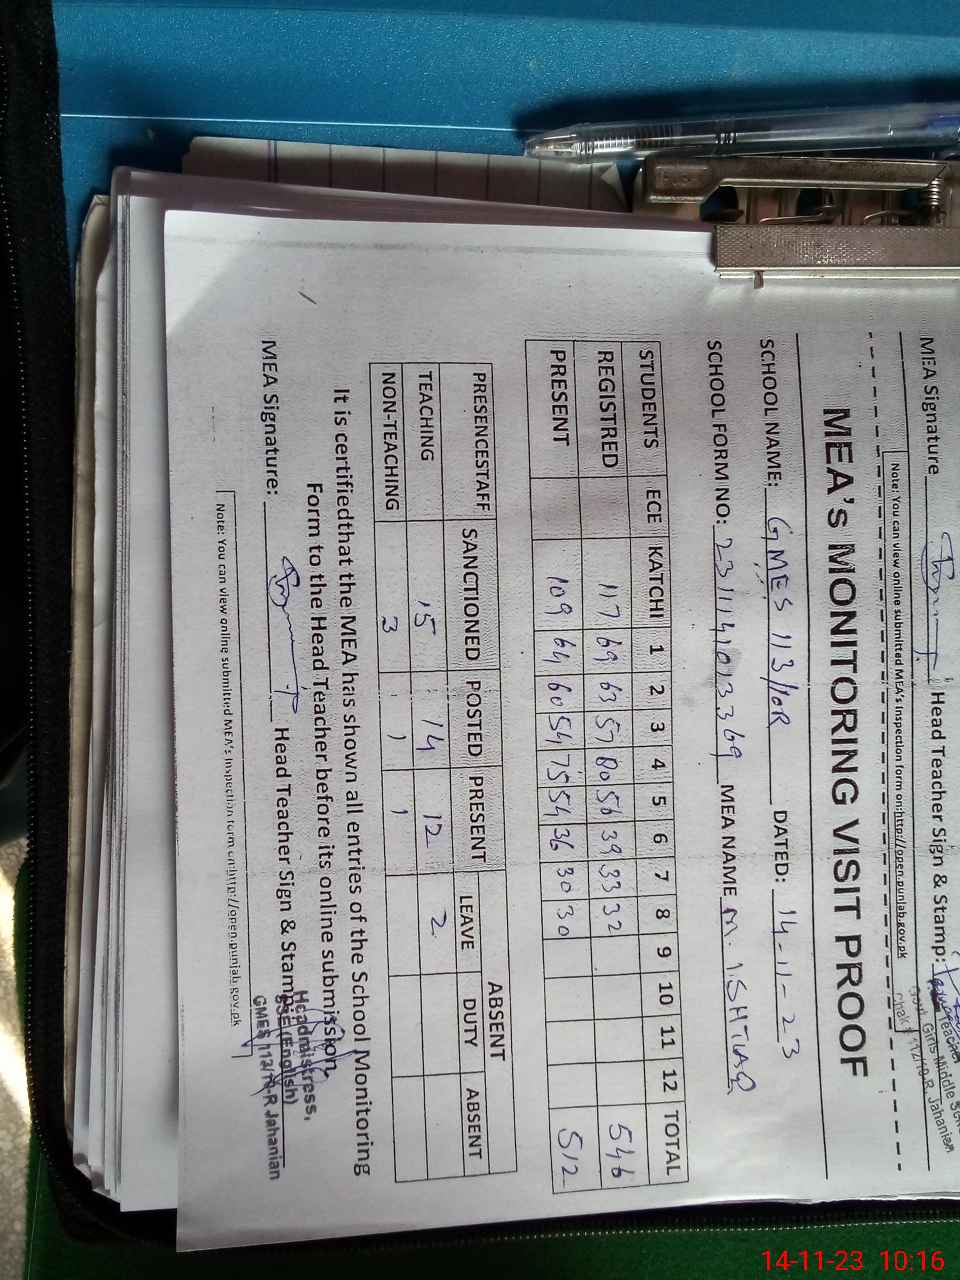 MEA Signature Head Teacher Sign & Stamp:
Head Teacher
Govt. Girls Middle
Chak # 112/10-R, Jahanian
Note: You can view online submitted MEA's Inspection form on:http://open.punjab.gov.pk
MEA's MONITORING VISIT PROOF
SCHOOL NAME: GMES 113/10R DATED: 14-11-23
SCHOOL FORM NO: 231141013369 MEA NAME M. ISHTIAQ
STUDENTS ECE KATCHI 1 2 3 4 5 6 7 8 9 10 11 12 TOTAL
REGISTRED 117 69 63 57 80 56 39 33 32 546
PRESENT 109 64 60 54 75 54 36 30 30 512
PRESENCESTAFF SANCTIONED POSTED PRESENT ABSENT
LEAVE DUTY ABSENT
TEACHING 15 14 12 2
NON-TEACHING 3 1 1
It is certifiedthat the MEA has shown all entries of the School Monitoring
Form to the Head Teacher before its online submission.
MEA Signature: Head Teacher Sign & Stamp:
Headmistress,
SSE (English)
GMES 113/10-R Jahanian
Note: You can view online submitted MEA's Inspection form on:http://open.punjab.gov.pk
14-11-23 10:16